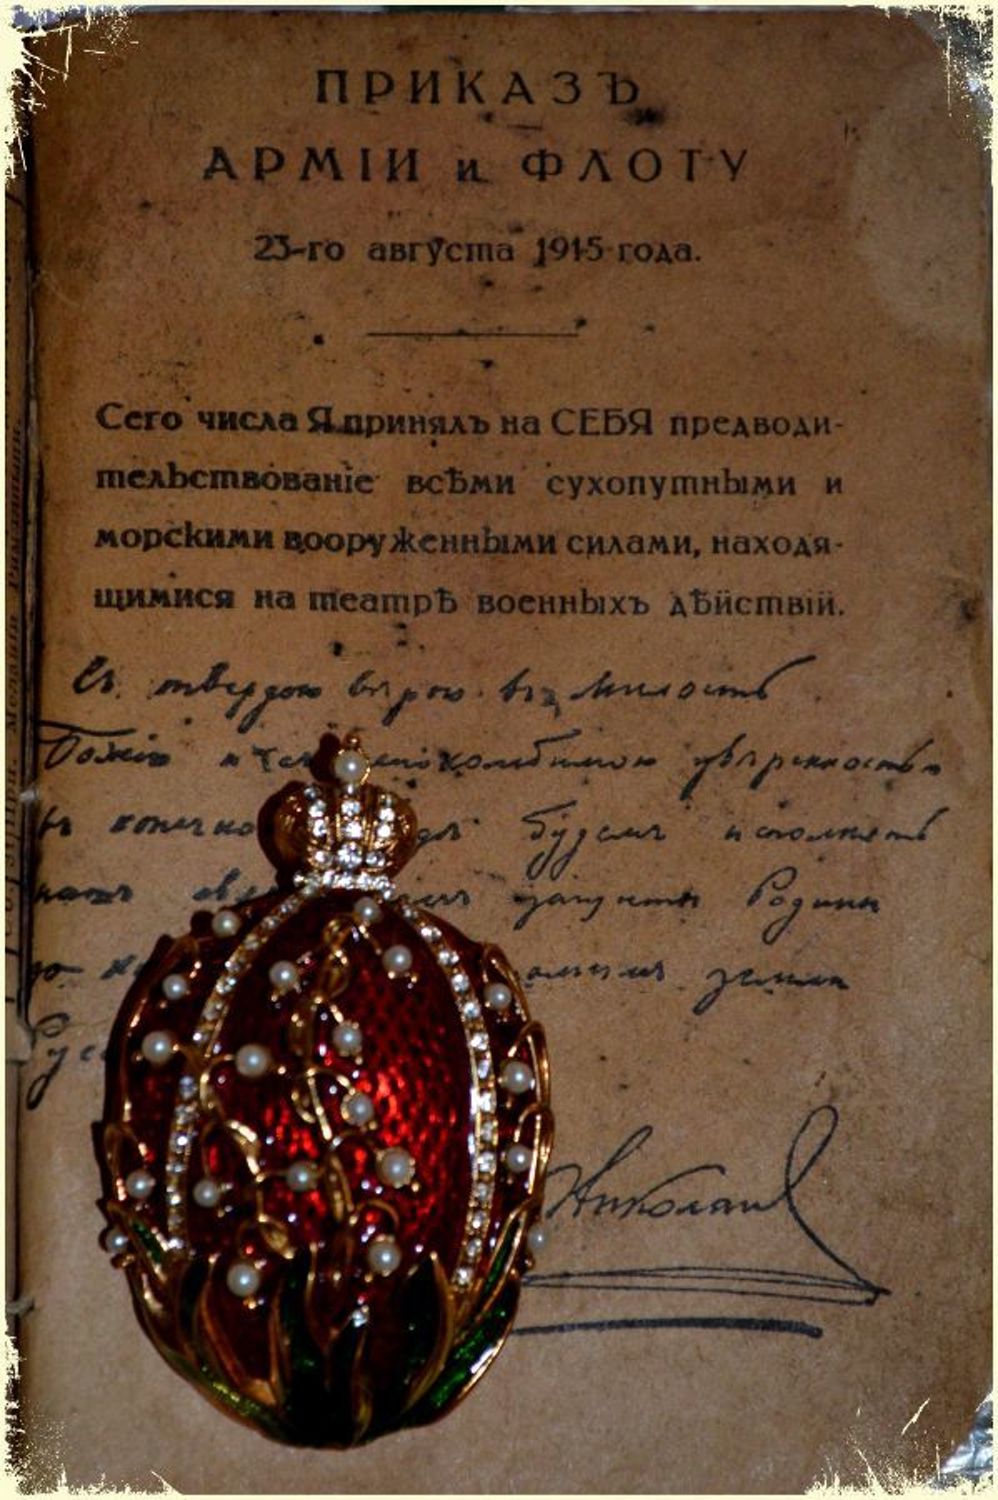 ПРИКАЗЪ
АРМІИ и ФЛОТУ
23-го августа 1915 года.
Сего числа Я принялъ на СЕБЯ предводи-
тельствованіе всѣми сухопутными и
морскими вооруженными силами, находя-
щимися на театрѣ военныхъ дѣйствій.
Съ твердою вѣрою въ милость
Божію и съ неколебимою увѣренностью
въ будемъ исполнять
нашъ защиты Родины
до земли
Николай